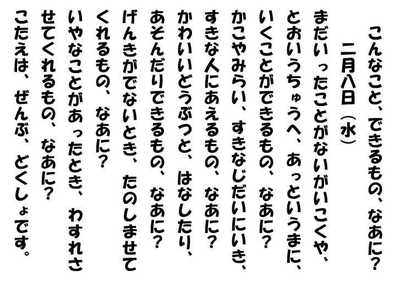 こんなこと、できるもの、なあに？
二月八日（水）
まだいったことがないがいこくや、
とおいうちゅうへ、あっというまに、
いくことができるもの、なあに？
かこやみらい、すきなじだいにいき、
すきな人にあえるもの、なあに？
かわいいどうぶつと、はなしたり、
あそんだりできるもの、なあに？
げんきがでないとき、たのしませて
くれるもの、なあに？
いやなことがあったとき、わすれさ
せてくれるもの、なあに？
こたえは、ぜんぶ、どくしょです。